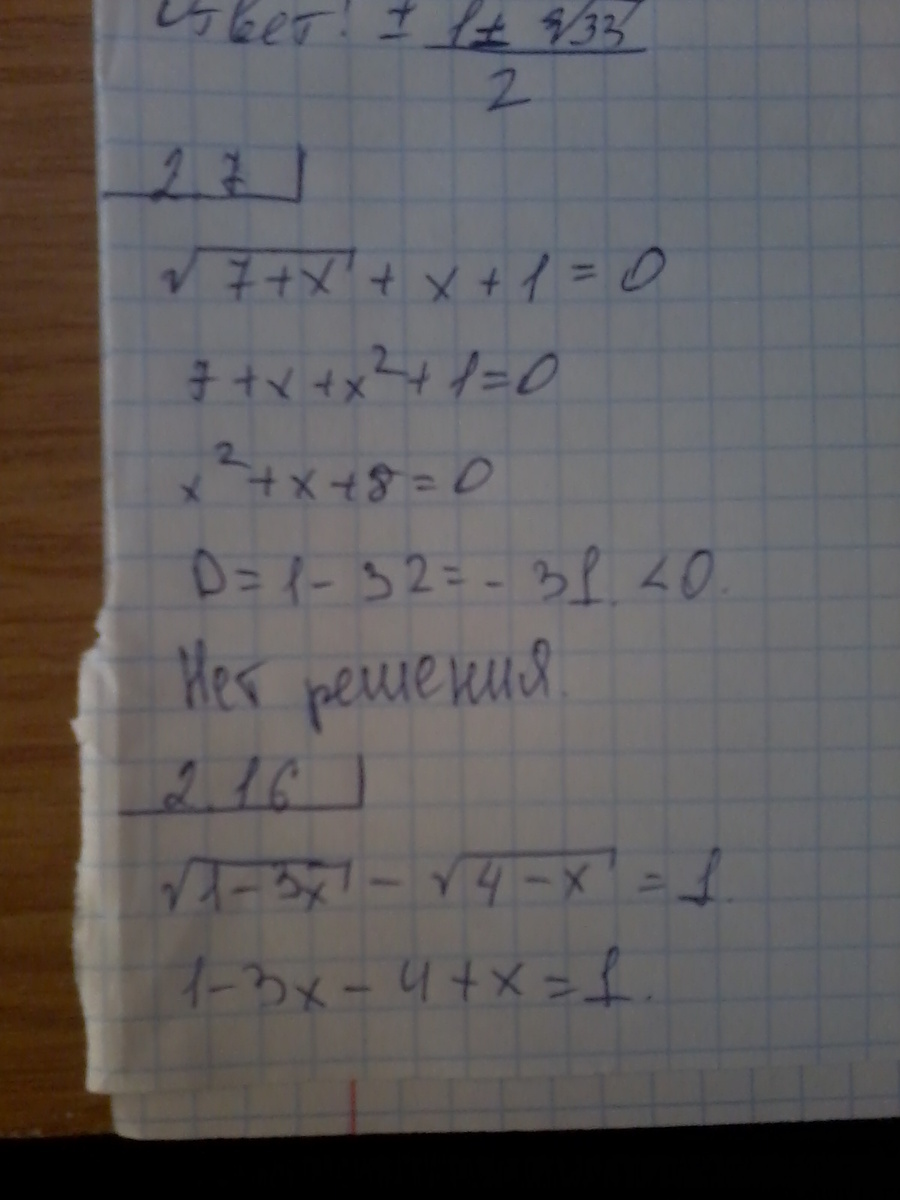 Ответ! ± (1 ± √33) / 2
2.7
√(7+x) + x + 1 = 0
7 + x + x² + 1 = 0
x² + x + 8 = 0
D = 1 - 32 = - 31 < 0.
Нет решения.
2.16
√(1-3x) - √(4-x) = 1.
1-3x - 4 + x = 1.